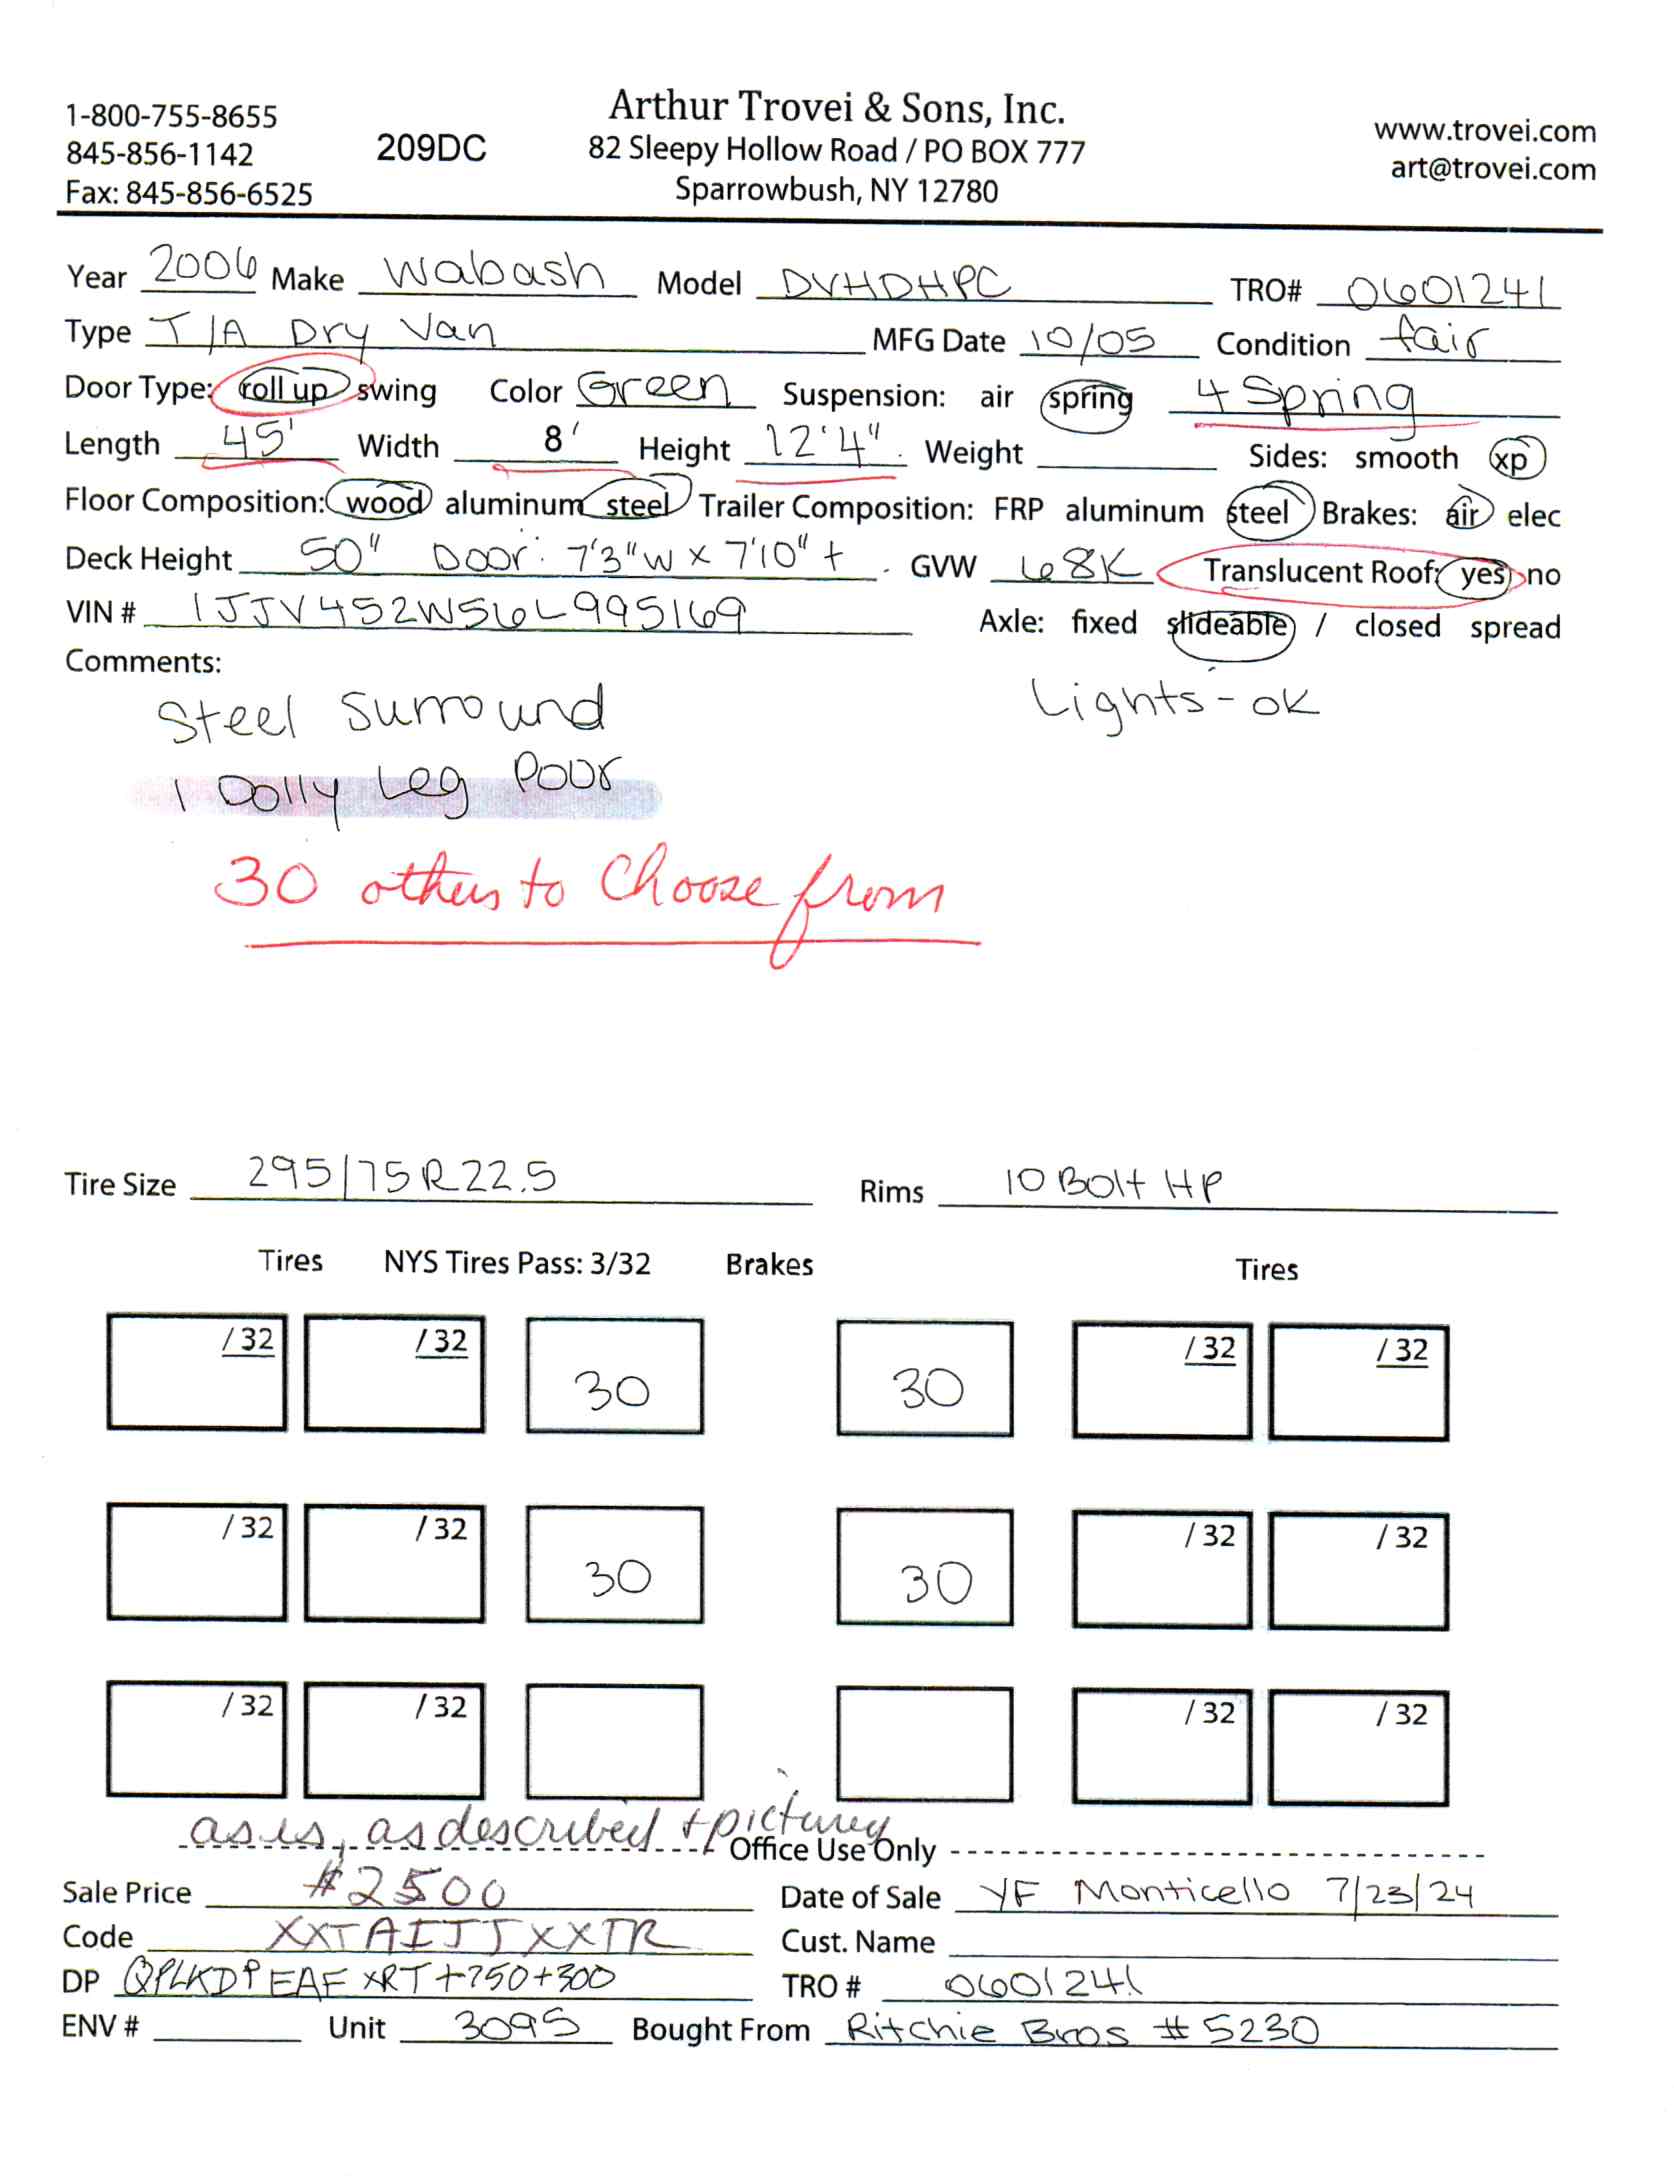 Arthur Trovei & Sons, Inc.
1-800-755-8655
845-856-1142 209DC 82 Sleepy Hollow Road / PO BOX 777 www.trovei.com
Fax: 845-856-6525 Sparrowbush, NY 12780 art@trovei.com
Year 2006 Make Wabash Model DVHDHPC TRO# 0601241
Type T/A Dry Van MFG Date 10/05 Condition fair
Door Type: roll up swing Color Green Suspension: air spring 4 Spring
Length 45' Width 8' Height 12'4" Weight Sides: smooth xp
Floor Composition: wood aluminum steel Trailer Composition: FRP aluminum steel Brakes: air elec
Deck Height 50" Door: 7'3"W x 7'10"+ GVW 68K Translucent Roof: yes no
VIN # 1JJV452W56L995169 Axle: fixed slideable / closed spread
Comments:
Steel Surround Lights-OK
1 Dolly Leg Poor
30 others to Choose from
Tire Size 295/75R22.5 Rims 10 Bolt HP
Tires NYS Tires Pass: 3/32 Brakes Tires
/32 /32 30 30 /32 /32
/32 /32 30 30 /32 /32
/32 /32 /32 /32
as is, as described + pictured
Office Use Only
Sale Price $2500 Date of Sale YF Monticello 7/23/24
Code XXTAIJJXXTR Cust. Name
DP QPLKDPEAF XRT+750+300 TRO # 0601241
ENV # Unit 3095 Bought From Ritchie Bros #5230